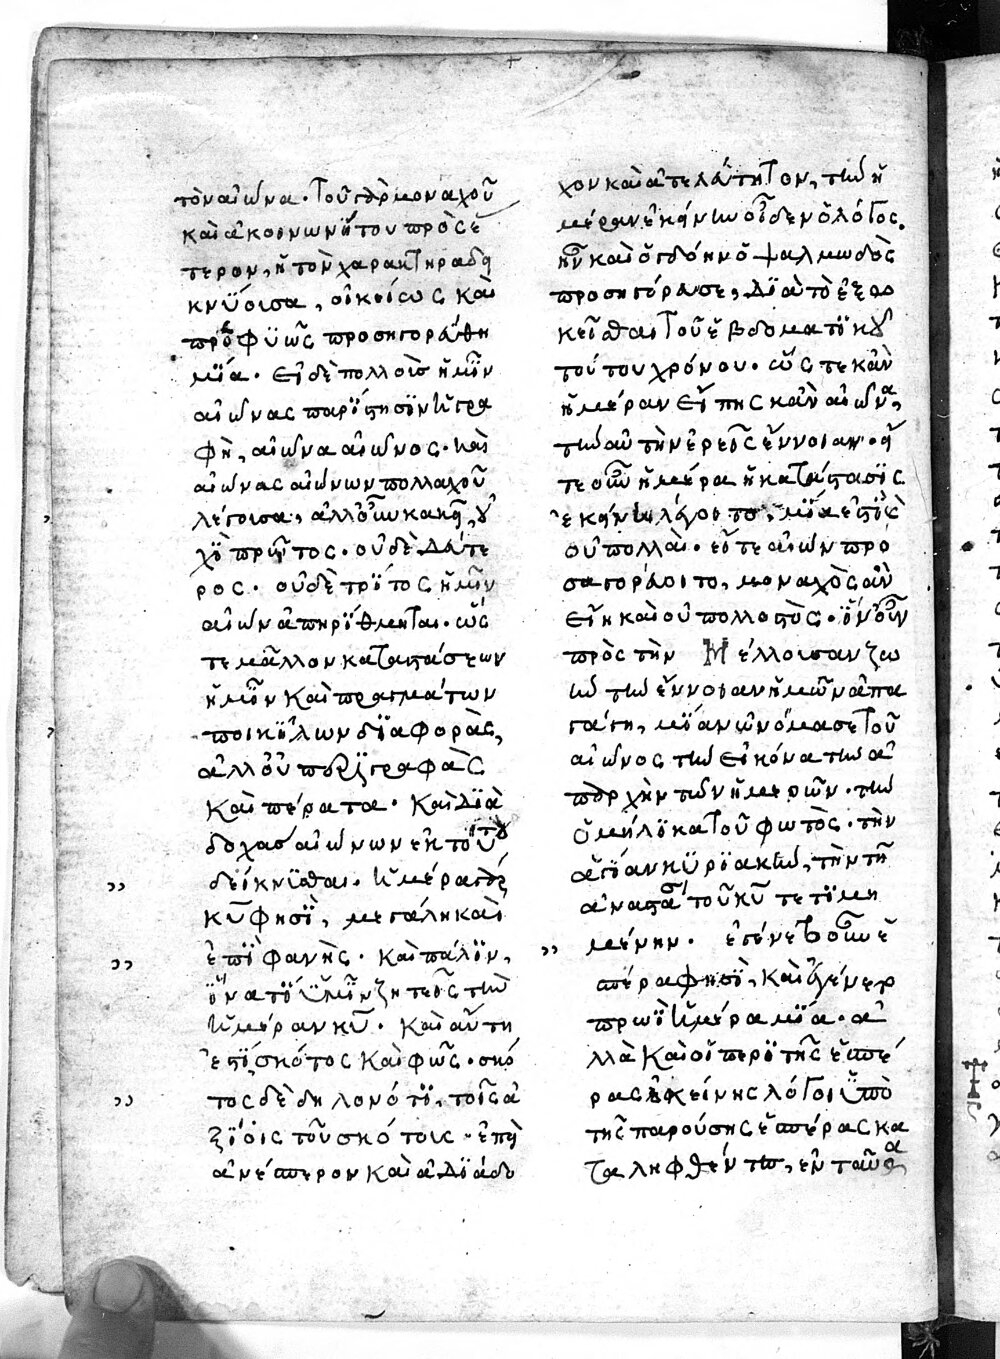 τὸν αἰῶνα. τοῦ γὰρ μοναχοῦ
καὶ ἀκοινωνήτου πρὸς ἕ
τερον, ἡ τὸν χαρακτῆρα δει
κνῦουσα, οἰκείως καὶ
προσφυῶς προσηγορεύθη
μία. εἰ δὲ πολλοὺς ἡμῖν
αἰῶνας παρίστησιν ἡ γρα
φὴ, αἰῶνα αἰῶνος. καὶ
αἰῶνας αἰώνων πολλαχοῦ
λέγουσα, ἀλλ' οὖν κἀκεῖ, οὐ
χὶ πρῶτος. οὐδὲ δεύτε
ρος. οὐδὲ τρίτος ἡμῖν
αἰὼν ἀπηρίθμηται. ὥς
τε μᾶλλον καταστάσεων
ἡμῖν καὶ πραγμάτων
ποικίλων διαφορὰς,
ἀλλ' οὐ περιγραφὰς
καὶ πέρατα. καὶ διὰ
δοχὰς αἰώνων ἐκ τούτου
δείκνυσθαι. ἡμέρα γὰρ
κῦ φησὶ, μεγάλη καὶ
ἐπιφανής. καὶ πάλιν,
ἵνα τί ὑμῖν ζητεῖς τὴν
ἡμέραν κῦ. καὶ αὕτη
ἐστὶ σκότος καὶ φῶς. σκό
τος δὲ δηλονότι, τοῖς ἀ
ξίοις τοῦ σκότους. ἐπεὶ
ἀνέσπερον καὶ ἀδιάδο
χον καὶ ἀτελεύτητον, τὴν ἡ
μέραν ἐκείνην οἶδεν ὁ λόγος.
ἣν καὶ ὀγδόην ὁ ψαλμωδὸς
προσηγόρευσε, διὰ τὸ ἔξω
κεῖσθαι τοῦ ἑβδοματικοῦ
τούτου χρόνου. ὥς τε κἂν
ἡμέραν εἴπης κἂν αἰῶνα,
τὴν αὐτὴν ἐρεῖς ἔννοιαν. εἴ
τε οὖν ἡμέρα ἡ κατάστασις
ἐκείνη λέγοιτο, μία ἐστὶ
οὐ πολλαί. εἴτε αἰὼν προ
σαγορεύοιτο, μοναχὸς ἂν
εἴη καὶ οὐ πολλοστός. ἵν' οὖν
πρὸς τὴν μέλλουσαν ζω
ὴν τὴν ἔννοιαν ἡμῶν ἀπα
γάγη, μίαν ὠνόμασε τοῦ
αἰῶνος τὴν εἰκόνα τὴν ἀ
παρχὴν τῶν ἡμερῶν. τὴν
ὁμήλικα τοῦ φωτός. τὴν
ἁγίαν κυριακὴν, τὴν τῆ
ἀναστάσει τοῦ κῦ τετιμη
μένην. ἐγένετο οὖν ἑ
σπέρα φησὶ, καὶ ἐγένετο
πρωῒ ἡμέρα μία. ἀ
λλὰ καὶ οἱ περὶ τῆς ἑσπέ
ρας ἐκείνης λόγοι ὑπὸ
τῆς παρούσης ἑσπέρας κα
ταληφθέντες, ἐνταῦθα